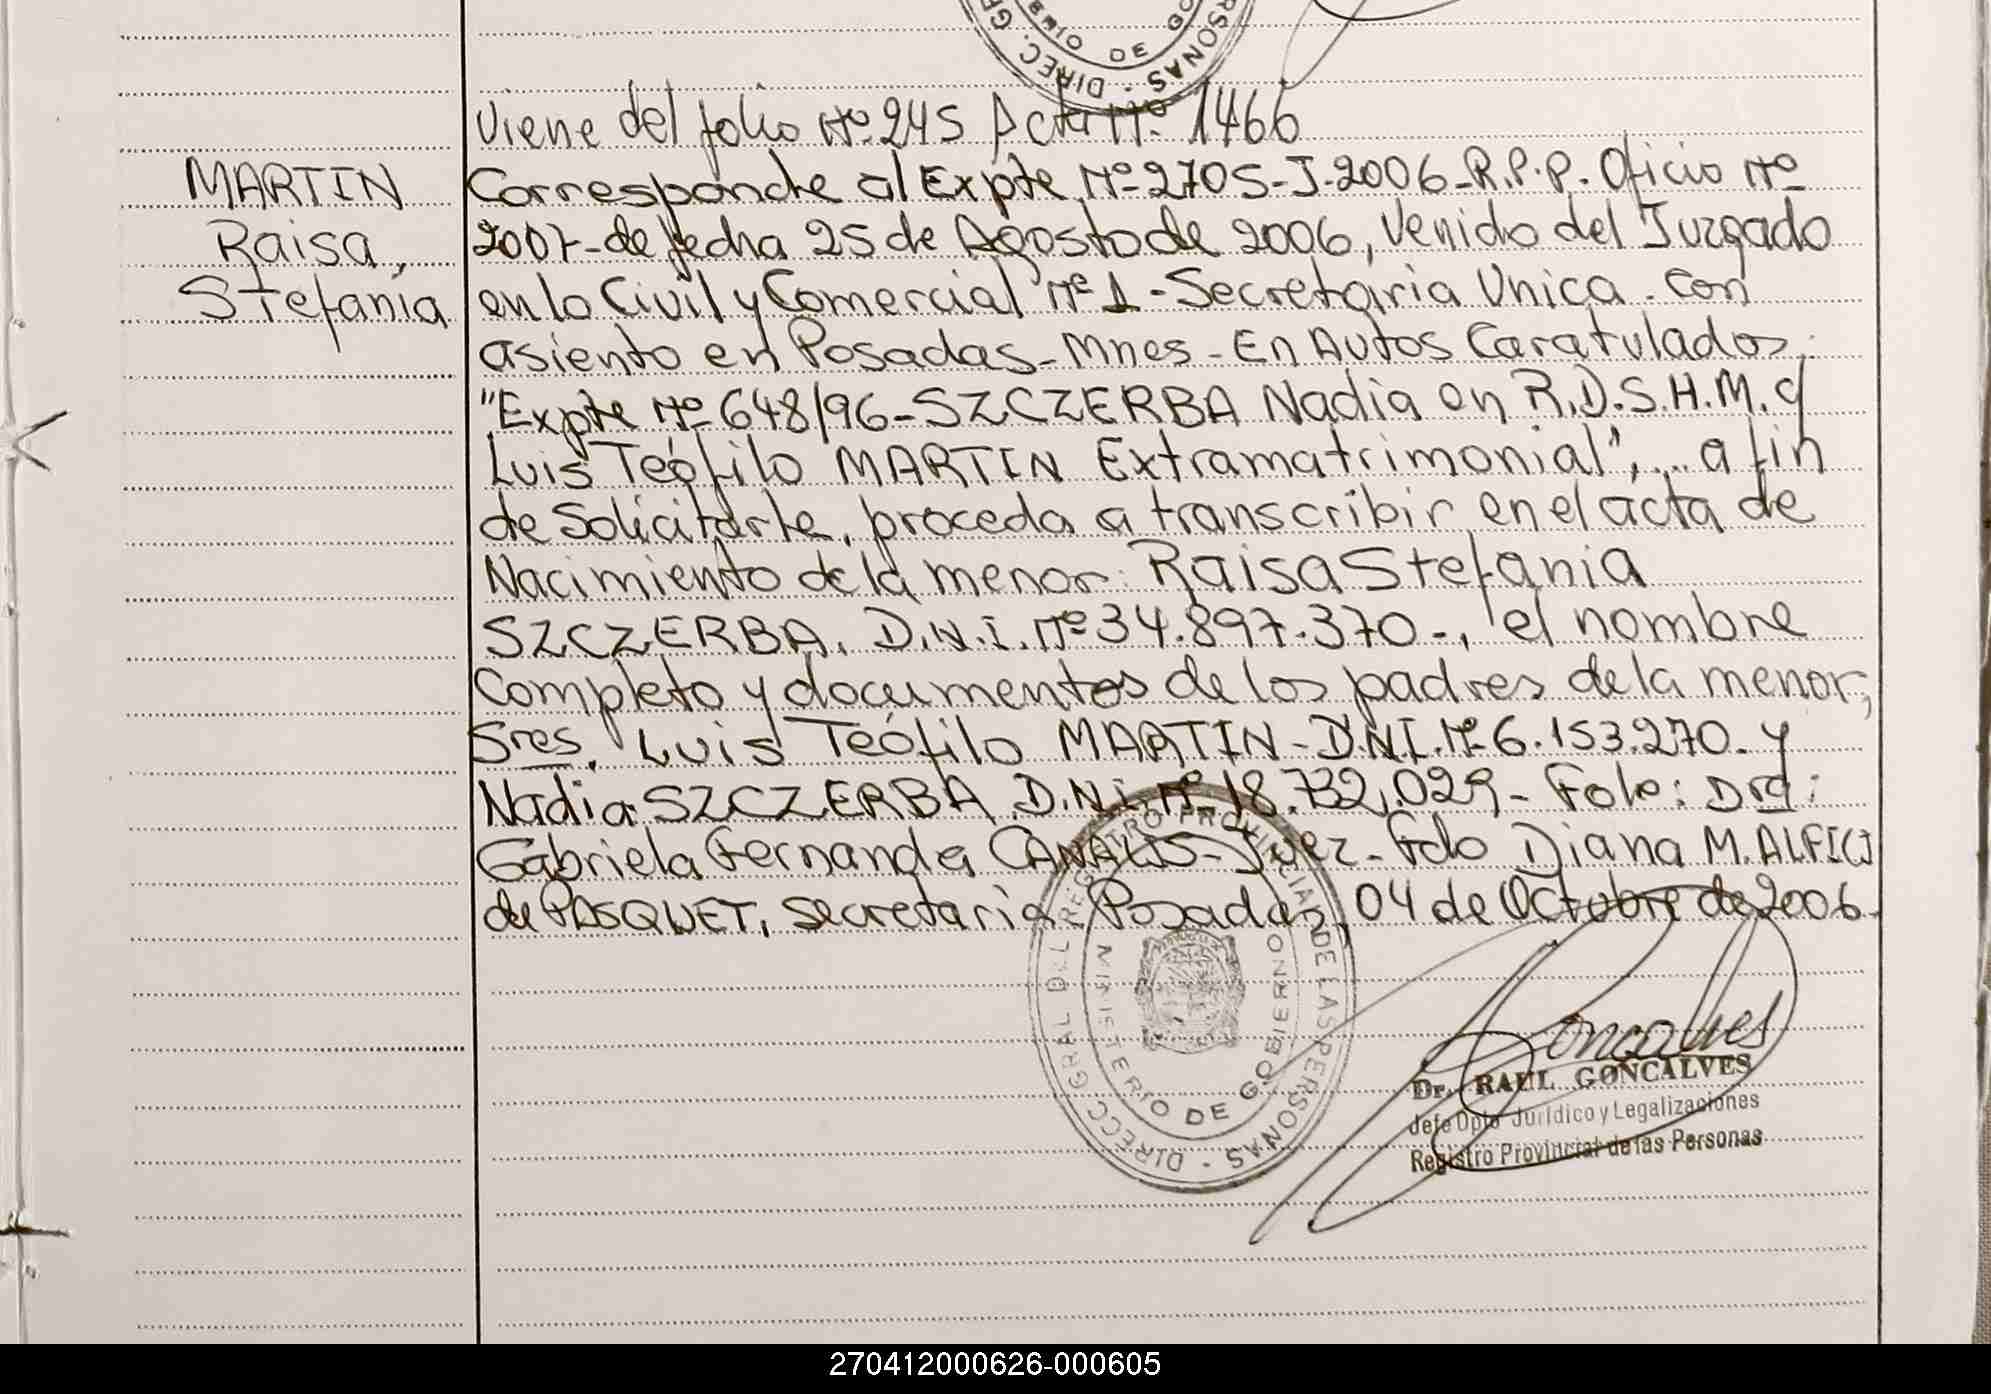 Viene del folio Nº 245 Acta Nº 1466
MARTIN
Raisa,
Stefanía
Corresponde al Expte Nº 2705-J-2006-R.P.P. Oficio Nº
2007- de fecha 25 de Agosto de 2006, Venido del Juzgado
en lo Civil y Comercial Nº 1 - Secretaria Unica. Con
asiento en Posadas - Mnes - En Autos Caratulados:
"Expte Nº 648/96-SZCZERBA Nadia en R.D.S.H.M. c/
Luis Teófilo MARTIN Extramatrimonial",... a fin
de Solicitarle, proceda a transcribir en el acta de
Nacimiento de la menor: Raisa Stefania
SZCZERBA. D.N.I. Nº 34.897.370-, el nombre
Completo y documentos de los padres de la menor;
Sres. Luis Teófilo MARTIN - D.N.I. Nº 6.153.270. y
Nadia SZCZERBA D.N.I. Nº 18.732.029- Fdo: Dra:
Gabriela Fernanda CANALIS - Juez - Fdo Diana M. ALFICI
de PASQUET, secretaria. Posadas, 04 de Octubre de 2006.
DIRECC. GRAL DEL REGISTRO PROVINCIAL DE LAS PERSONAS -
MINISTERIO DE GOBIERNO
Goncalves
Dr. RAUL GONCALVES
Jefe Dpto Jurídico y Legalizaciones
Registro Provincial de las Personas
270412000626-000605